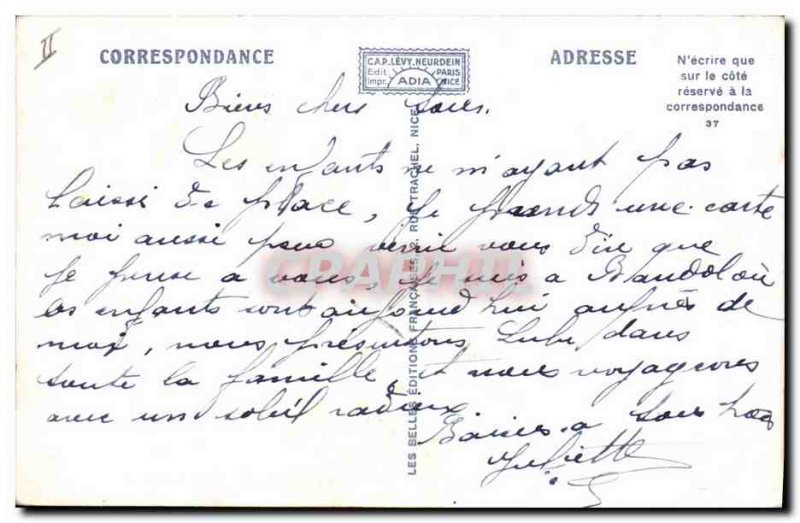 II
CORRESPONDANCE
C.A.P. LÉVY. NEURDEIN
Edit. PARIS
Impr. ADIA NICE
ADRESSE
N'écrire que
sur le côté
réservé à la
correspondance
37
Biens chers tous.
Les enfants ne m'ayant pas
laissé de place, je prends une carte
moi aussi pour venir vous dire que
je pense a vous, je suis a Bandol où
les enfants sont aujourd'hui auprès de
moi, nous présentons Lulu dans
toute la famille et nous voyageons
avec un soleil radieux
Baisers a tous
Juliette
LES BELLES ÉDITIONS FRANÇAISES, 2, RUE TRACHEL, NICE
CPAPHIL